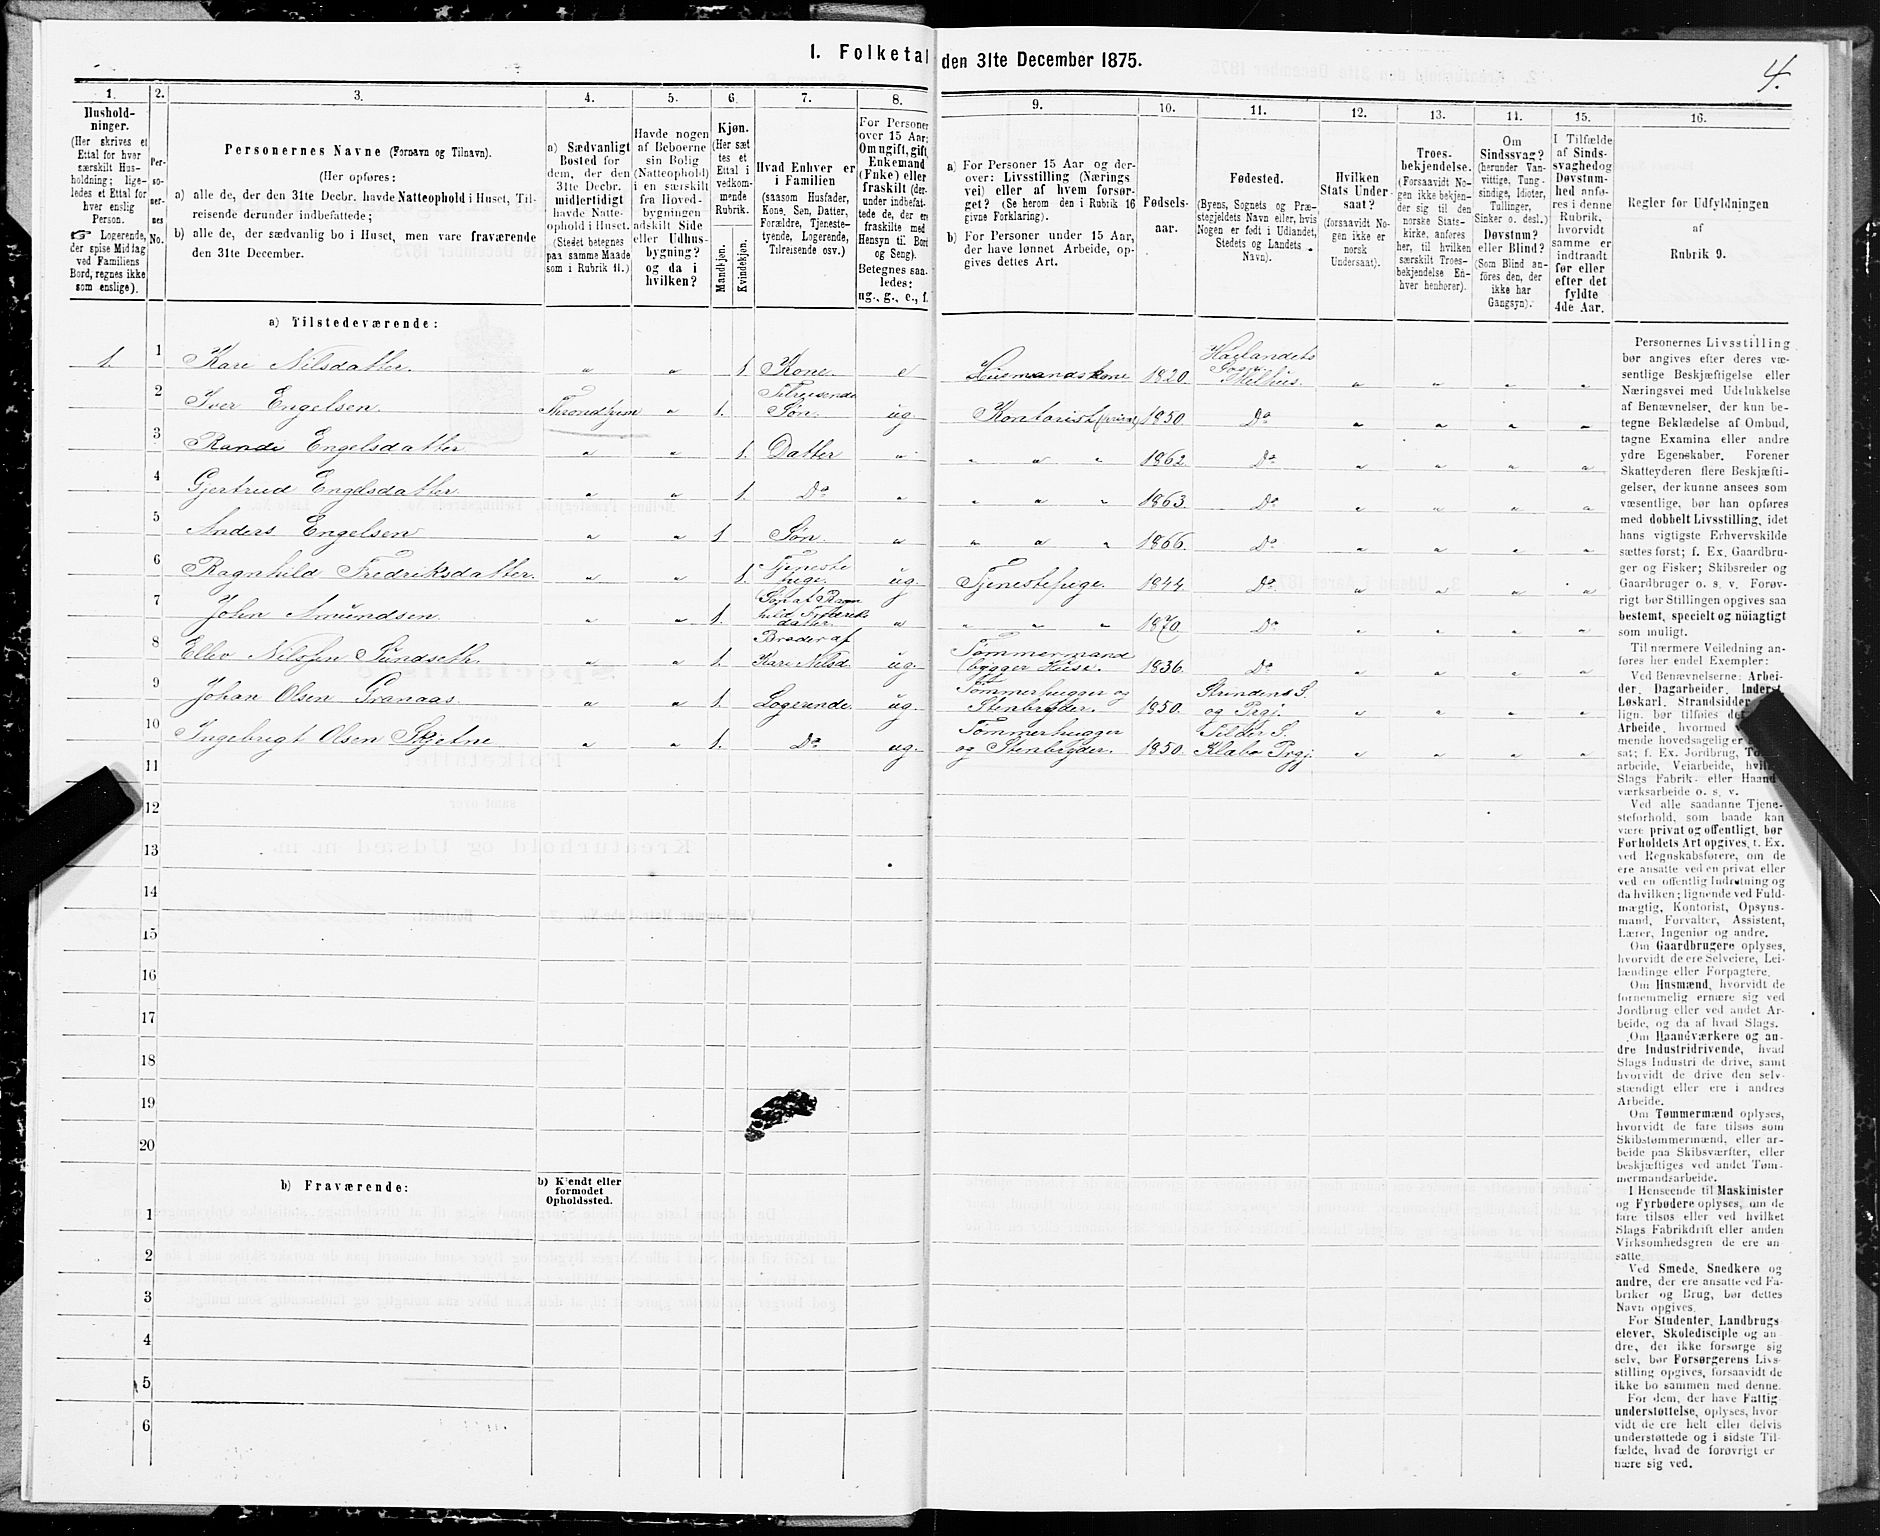 1. Folketal den 31te December 1875.
4.
1. 2. 3. 4. 5. 6. 7. 8. 9. 10. 11. 12. 13. 14. 15. 16.
Hushold-
ninger.
(Her skrives et
Ettal for hver
særskilt Hus-
holdning; lige-
ledes et Ettal for
hver enslig
Person.
☞ Logerende,
der spise Middag
ved Familiens
Bord, regnes ikke
som enslige).
Per-
so-
ner-
nes
No.
Personernes Navne (Fornavn og Tilnavn).
(Her opføres:
a) alle de, der den 31te Decbr. havde Natteophold i Huset, Til-
reisende derunder indbefattede;
b) alle de, der sædvanlig bo i Huset, men vare fraværende
den 31te December.
a) Sædvanligt
Bosted for
dem, der den
31te Decbr.
midlertidigt
havde Natte-
ophold i Huset.
(Stedet betegnes
paa samme Maade
som i Rubrik 11.)
Havde nogen
af Beboerne
sin Bolig
(Natteophold)
i en særskilt
fra Hoved-
bygningen
adskilt Side
eller Udhus-
bygning?
og da i
hvilken?
Kjøn.
(Her sæt-
tes et
Ettal i
vedkom-
mende
Rubrik.
Mandkjøn.
Kvindekjøn.
Hvad Enhver er
i Familien
(saasom Husfader,
Kone, Søn, Datter,
Forældre, Tjeneste-
tyende, Logerende,
Tilreisende osv.)
For Personer
over 15 Aar:
Om ugift, gift,
Enkemand
(Enke) eller
fraskilt (der-
under indbefat-
tede de, der ere
fraskilte med
Hensyn til Bord
og Seng).
Betegnes saa-
ledes:
ug., g., e., f.
a) For Personer 15 Aar og der-
over: Livsstilling (Nærings-
vei) eller af hvem forsør-
get? (Se herom den i Rubrik 16
givne Forklaring).
b) For Personer under 15 Aar,
der have lønnet Arbeide, op-
gives dettes Art.
Fødsels-
aar.
Fødested.
(Byens, Sognets og Præ-
stegjeldets Navn eller, hvis
Nogen er født i Udlandet,
Stedets og Landets
Navn).
Hvilken
Stats Under-
saat?
(forsaavidt No-
gen ikke er
norsk
Undersaat).
Troes-
bekjendelse.
(Forsaavidt No-
gen ikke bekjen-
der sig til den
norske Stats-
kirke, anføres
her, til hvilken
særskilt Troes-
bekjendelse En-
hver henhører).
Om
Sindssvag?
(herunder Van-
vittige, Tung-
sindige, Idioter,
Tullinger,
Sinker o. desl.)
Døvstum?
eller Blind?
(Som Blind an-
føres den, der
ikke har
Gangsyn).
I Tilfælde
af Sinds-
svaghed og
Døvstum-
hed anfø-
res i denne
Rubrik,
hvorvidt
samme er
indtraadt
før eller
efter det
fyldte
4de Aar.
Regler for Udfyldningen
af
Rubrik 9.
a) Tilstedeværende:
1. 1 Kari Nilsdatter. " " 1. Kone. e Husmandskone 1820. Horlandets Sogn Melhus. " " " "
2 Iver Engelsen. Throndhjem " 1. Tilreisende Søn. ug. Kontorist (privat) 1850. Do " " " "
3 Randi Engelsdatter " " 1. Datter " " " " 1862. Do " " " "
4 Gjertrud Engelsdatter. " " 1. Do " " " " 1863. Do " " " "
5 Anders Engelsen " " 1 Søn. " " " " 1866. Do " " " "
6 Ragnhild Fredriksdatter. " " 1. Tjeneste pige. ug. Tjenestepige. 1844. Do " " " "
7 John Amundsen. " " 1. Søn af Ragn hild Frederiks datter. " " " " 1870. Do " " " "
8 Ellev Nilssen Sundseth. " " 1. Broder af Kari Nilsd. ug. Tømmermand bygger Huse. 1836. Do " " " "
9 Johan Olsen Granaas. " " 1. Logerende. ug. Tømmerhugger og Stenbryder. 1850. Strindens S. og Prgj. " " " "
10 Ingebrigt Olsen Skjetne " " 1. Do ug. Tømmerhugger og Stenbryder. 1850. Tiller S. Klæbo Prgj. " " " "
11
12
13
14
15
16
17
18
19
20
b) Fraværende:
b) Kjendt eller
formodet
Opholdssted.
1
2
3
4
5
6
Personernes Livsstilling
bør angives efter deres væ-
sentlige Beskjæftigelse eller
Næringsvei med Udelukkelse
af Benævnelser, der kun be-
tegne Beklædelse af Ombud,
tagne Examina eller andre
ydre Egenskaber. Forener
Skatteyderen flere Beskjæfti-
gelser, der kunne ansees som
væsentlige, bør han opføres
med dobbelt Livsstilling, idet
hans vigtigste Erhvervskilde
sættes først; f. Ex. Gaardbru-
ger og Fisker; Skibsreder og
Gaardbruger o. s. v. Forøv-
rigt bør Stillingen opgives saa
bestemt, specielt og nöiagtigt
som muligt.
Til nærmere Veiledning an-
føres her endel Exempler:
Ved Benævnelserne: Arbei-
der, Dagarbeider, Inderst,
Løskarl, Strandsidder
lign. bør tilføies de
Arbeide, hvormed
mende hovedsagelig er
sat; f. Ex. Jordbrug,
arbeide, Veiarbeide, hvil
Slags Fabrik- eller Haand-
værksarbeide o. s. v.
Ved alle saadanne Tjene-
steforhold, som baade kan
være privat og offentligt, bør
Forholdets Art opgives, f. Ex.
ved Regnskabsførere, om de
ere ansatte ved en privat eller
ved en offentlig Indretning og
da hvilken; lignende ved Fuld-
mægtig, Kontorist, Opsyns-
mand, Forvalter, Assistent,
Lærer, Ingeniør og andre.
Om Gaardbrugere oplyses,
hvorvidt de ere Selveiere, Lei-
lændinge eller Forpagtere.
Om Husmænd, hvorvidt de
fornemmelig ernære sig ved
Jordbrug eller ved andet Ar-
beide, og da af hvad Slags.
Om Haandværkere og an-
dre Industridrivende, hvad
Slags Industri de drive, samt
hvorvidt de drive den selv-
stændigt eller ere i andres
Arbeide.
Om Tømmermænd oplyses,
hvorvidt de fare tilsøs som
Skibstømmermænd, eller ar-
beide paa Skibsværfter, eller
beskjæftiges ved andet Tøm-
mermandsarbeide.
I Henseende til Maskinister
og Fyrbødere oplyses, om de
fare tilsøs eller ved hvilket
Slags Fabrikdrift eller anden
Virksomhedsgren de ere an-
satte.
Ved Smede, Snedkere og
andre, der ere ansatte ved Fa-
briker og Brug, bør dettes
Navn opgives.
For Studenter, Landbrugs-
elever, Skoledisciple og an-
dre, der ikke forsørge sig
selv, bør Forsørgerens Livs-
stilling opgives, forsaavidt de
ikke bo sammen med denne.
For dem, der have Fattig-
understøttelse, oplyses, hvor-
vidt de ere helt eller delvis
understøttede og i sidste Til-
fælde, hvad de forøvrigt er-
nære sig ved.